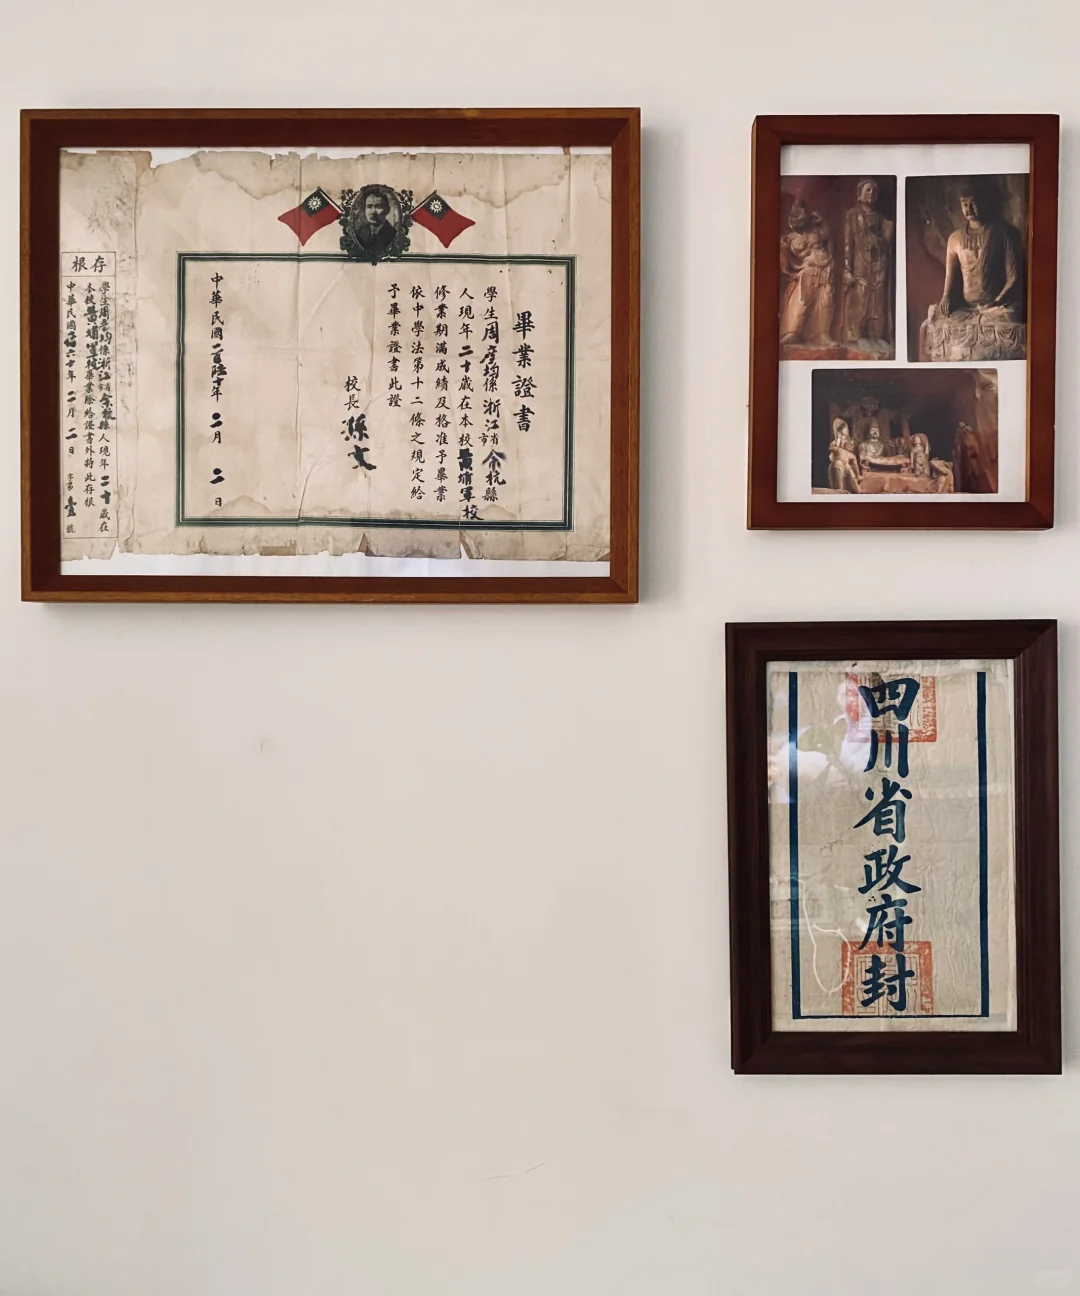 畢業證書
學生周彥均係浙江省市余杭縣
人現年二十歲在本校黃埔軍校
修業期滿成績及格准予畢業
依中學法第十二條之規定給
予畢業證書此證
校長 孫文
中華民國二百陸十年二月二日
存根
學生周彥均係浙江省市余杭縣人現年二十歲在
本校黃埔軍校畢業除給證書外特此存根
中華民國六十年二月二日 字第壹號
四川省政府封